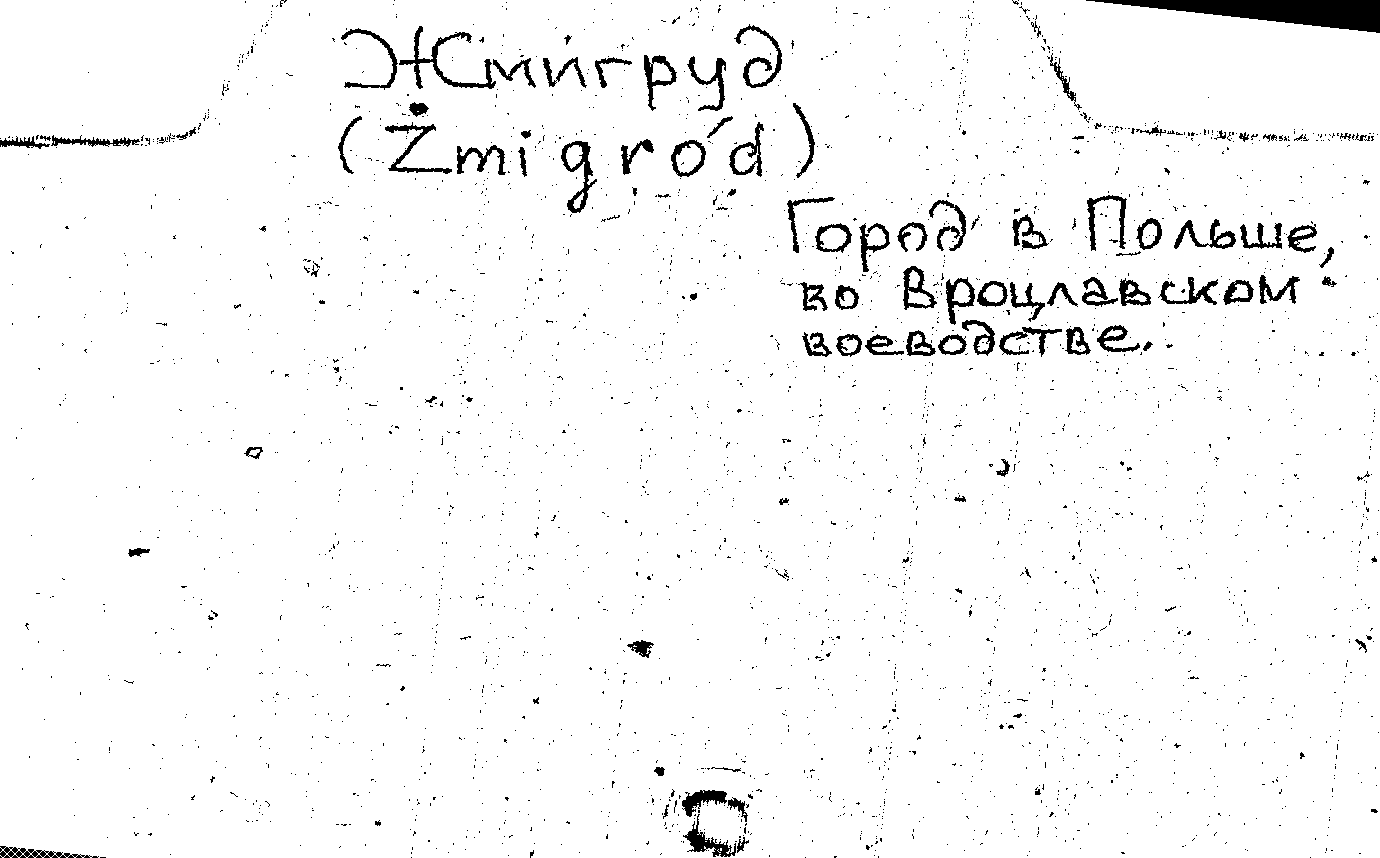 Жмигруд
(Żmigród)
Город в Польше,
во Вроцлавском
воеводстве.